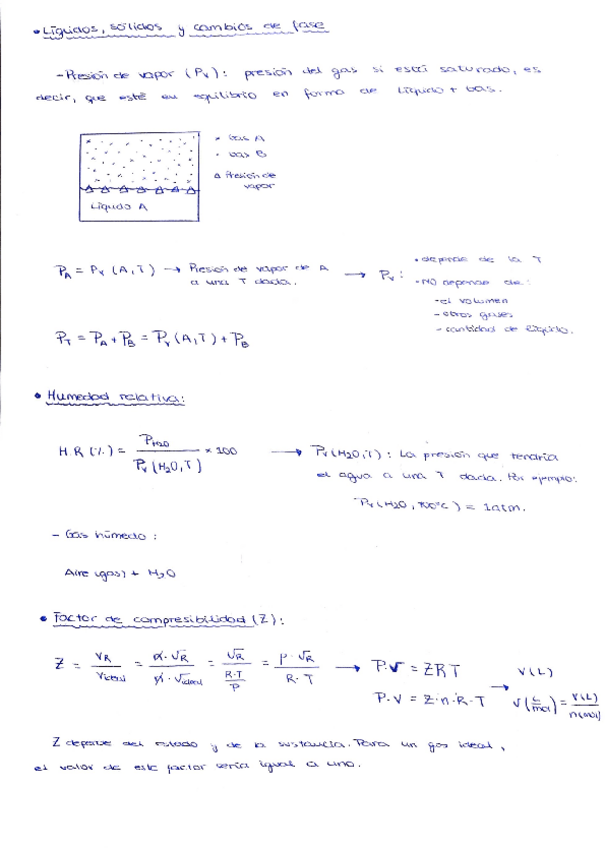 • Líquidos, sólidos y cambios de fase
- Presión de vapor (Pv): presión del gas si está saturado, es
decir, que esté en equilibrio en forma de Líquido + Gas.
× Gas A
• Gas B
Δ Presión de
vapor
Líquido A
P_A = P_v (A,T) → Presión de vapor de A
a una T dada.
→ P_v:
• depende de la T
• NO depende de:
- el volumen
- otros gases
- cantidad de líquido.
P_T = P_A + P_B = P_v (A,T) + P_B
• Humedad relativa:
H.R (%) = P_H2O / P_v (H2O,T) × 100 → P_v (H2O,T): La presión que tendría
el agua a una T dada. Por ejemplo:
P_v (H2O, 100°C) = 1 atm.
- Gas húmedo:
Aire (gas) + H2O
• Factor de compresibilidad (Z):
Z = V_R / V_ideal = n · V_R / n · V_ideal = V_R / (R·T / P) = P · V_R / R · T → P·V = Z R T
P·V = Z·n·R·T → V(L)
V (L/mol) = V(L) / n(mol)
Z depende del estado y de la sustancia. Para un gas ideal,
el valor de este factor sería igual a uno.